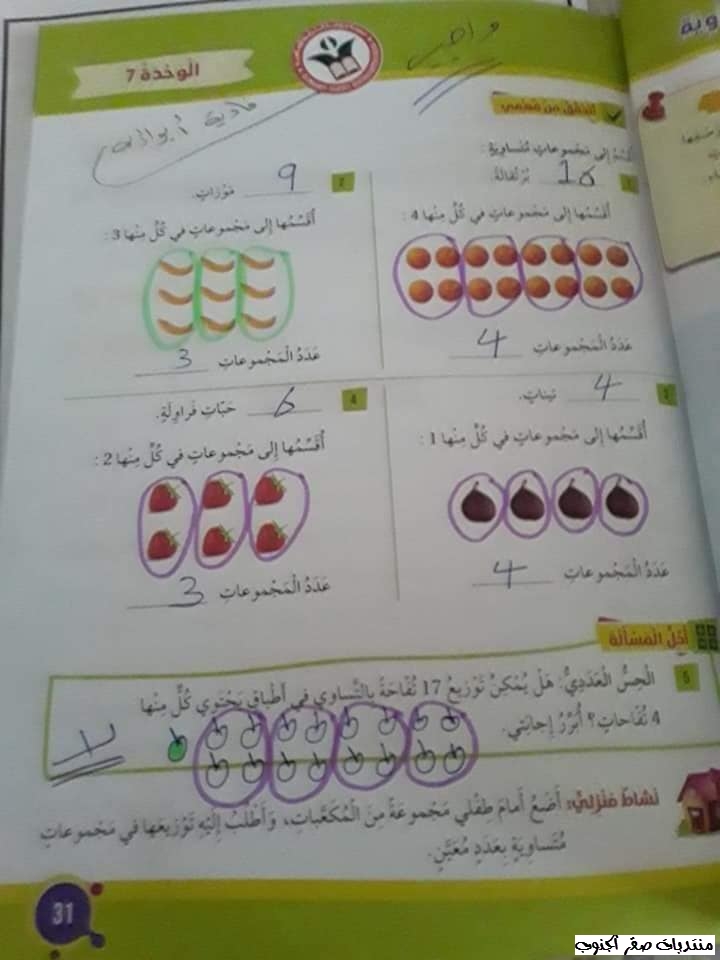 واجب
الْوَحْدَةُ 7
أَتَحَقَّقُ مِنْ فَهْمِي
أُقَسِّمُ إِلى مَجْموعاتٍ مُتَساوِيَةٍ:
1
16 بُرْتُقالَةً.
أُقَسِّمُها إِلى مَجْموعاتٍ في كُلٍّ مِنْها 4:
عَدَدُ الْمَجْموعاتِ 4
2
9 مَوْزاتٍ.
أُقَسِّمُها إِلى مَجْموعاتٍ في كُلٍّ مِنْها 3:
عَدَدُ الْمَجْموعاتِ 3
3
4 تيناتٍ.
أُقَسِّمُها إِلى مَجْموعاتٍ في كُلٍّ مِنْها 1:
عَدَدُ الْمَجْموعاتِ 4
4
6 حَبّاتِ فَراوِلَةٍ.
أُقَسِّمُها إِلى مَجْموعاتٍ في كُلٍّ مِنْها 2:
عَدَدُ الْمَجْموعاتِ 3
أَحُلُّ الْمَسْأَلَةَ
5
الْحِسُّ الْعَدَدِيُّ: هَلْ يُمْكِنُ تَوْزيعُ 17 تُفّاحَةً بِالتَّساوي في أَطْباقٍ يَحْتَوي كُلٌّ مِنْها
4 تُفّاحاتٍ؟ أُبَرِّرُ إِجابَتي.
لا
نَشاطٌ مَنْزِلِيٌّ: أَضَعُ أَمامَ طِفْلي مَجْموعَةً مِنَ الْمُكَعَّباتِ، وَأَطْلُبُ إِلَيْهِ تَوْزيعَها في مَجْموعاتٍ
مُتَساوِيَةٍ بِعَدَدٍ مُعَيَّنٍ.
31
منتديات صقر الجنوب